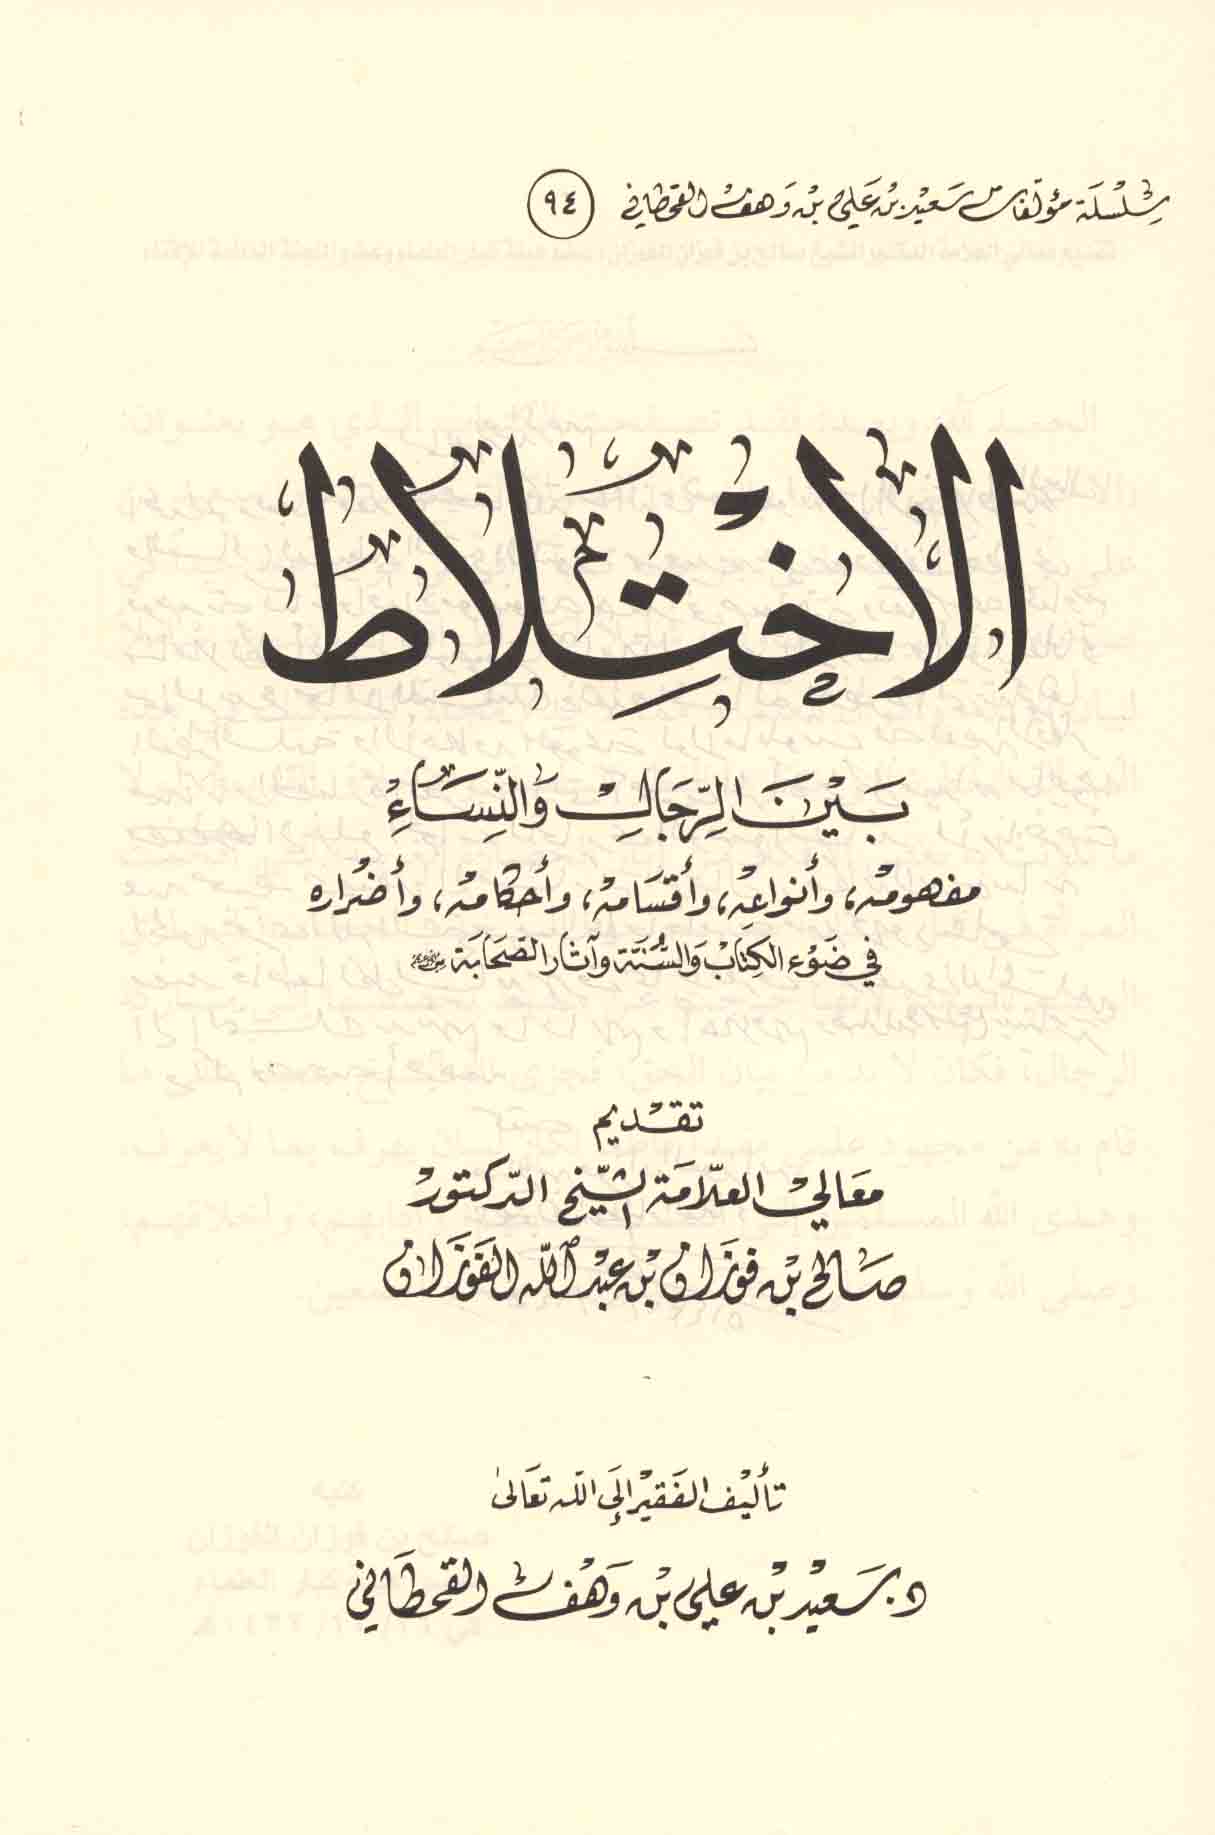 سِلْسِلَة مُؤلّفات سَعيد بن عَلي بْن وَهف القحطاني ٩٤
الاختِلاط
بَيْنَ الرِّجَالِ وَالنِّسَاءِ
مفهومه، وأنواعه، وأقسَامه، وأحكامه، وأضراره
في ضَوْء الكِتَاب وَالسُّنَّة وآثار الصَّحَابَة رضي الله عنهم
تقديم
معَالي العلّامَة الشّيخ الدّكتور
صَالح بْن فوزَان بْن عبْد الله الفَوزَان
تأليف الفَقير إلَى الله تعَالى
د. سَعيد بْن علي بْن وَهف القحطَاني